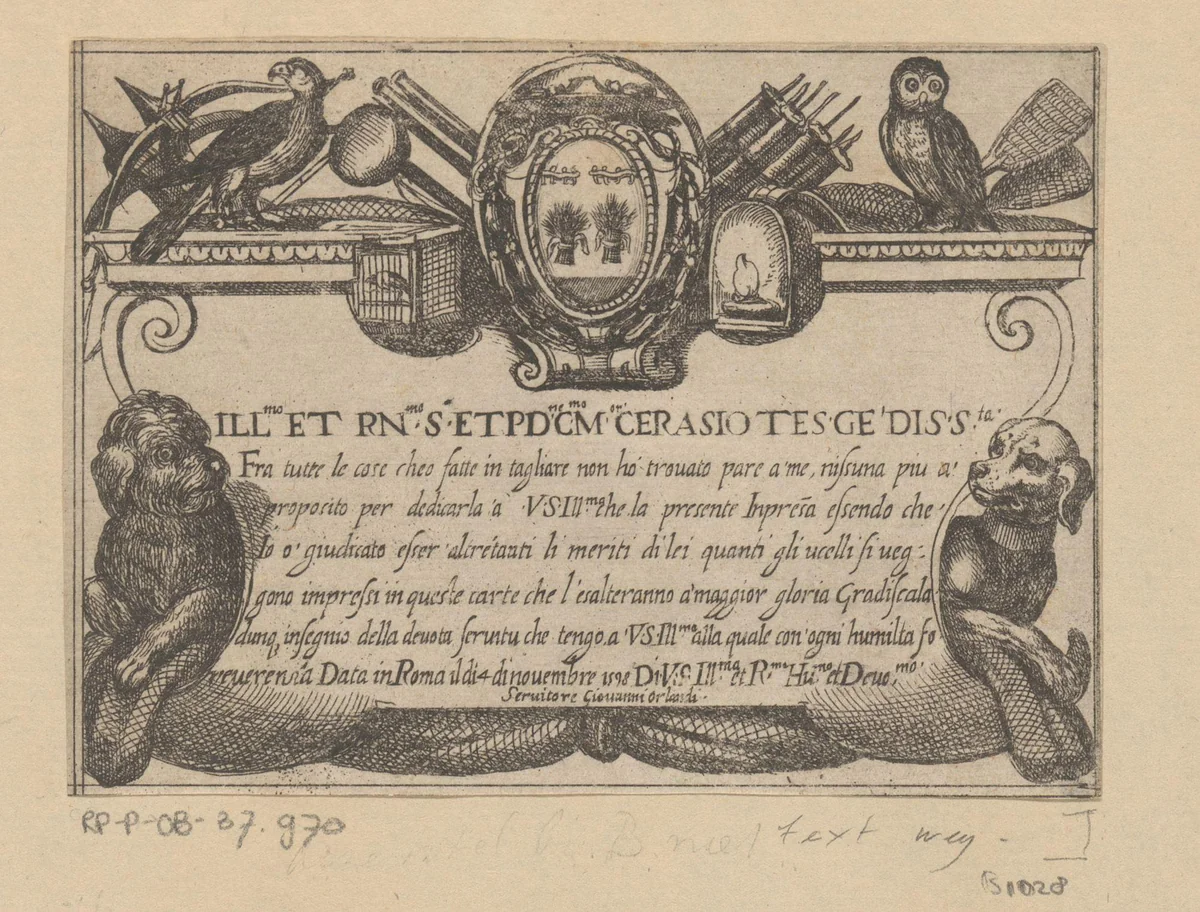 ILL.mo ET RN.mo S.r ET P D.ne C.mo M.or CERASIO TES·GE' DIS·S.ta·
Fra tutte le cose cheo fatte in tagliare non ho' trouato pare a' me, nissuna piu a'
proposito per dedicarla a' V·S·Ill.ma che la presente Inpresa essendo che
Io o' giudicato esser altretanti li meriti di lei quanti gli ucelli si ueg-
gono impressi in queste carte che l'esalteranno a' maggior gloria Gradiscala
dunq, insegnio della deuota seruitu che tengo a V·S·Ill.ma alla quale con' ogni humilta fo
reuerenza Data in Roma il di 4 di nouembre 1598 Di V·S· Ill.ma et R.ma Hu.mo et Deuo.mo
Seruitore Giouanni Orlandi·
RP-P-OB-37.970
text weg -
B1028